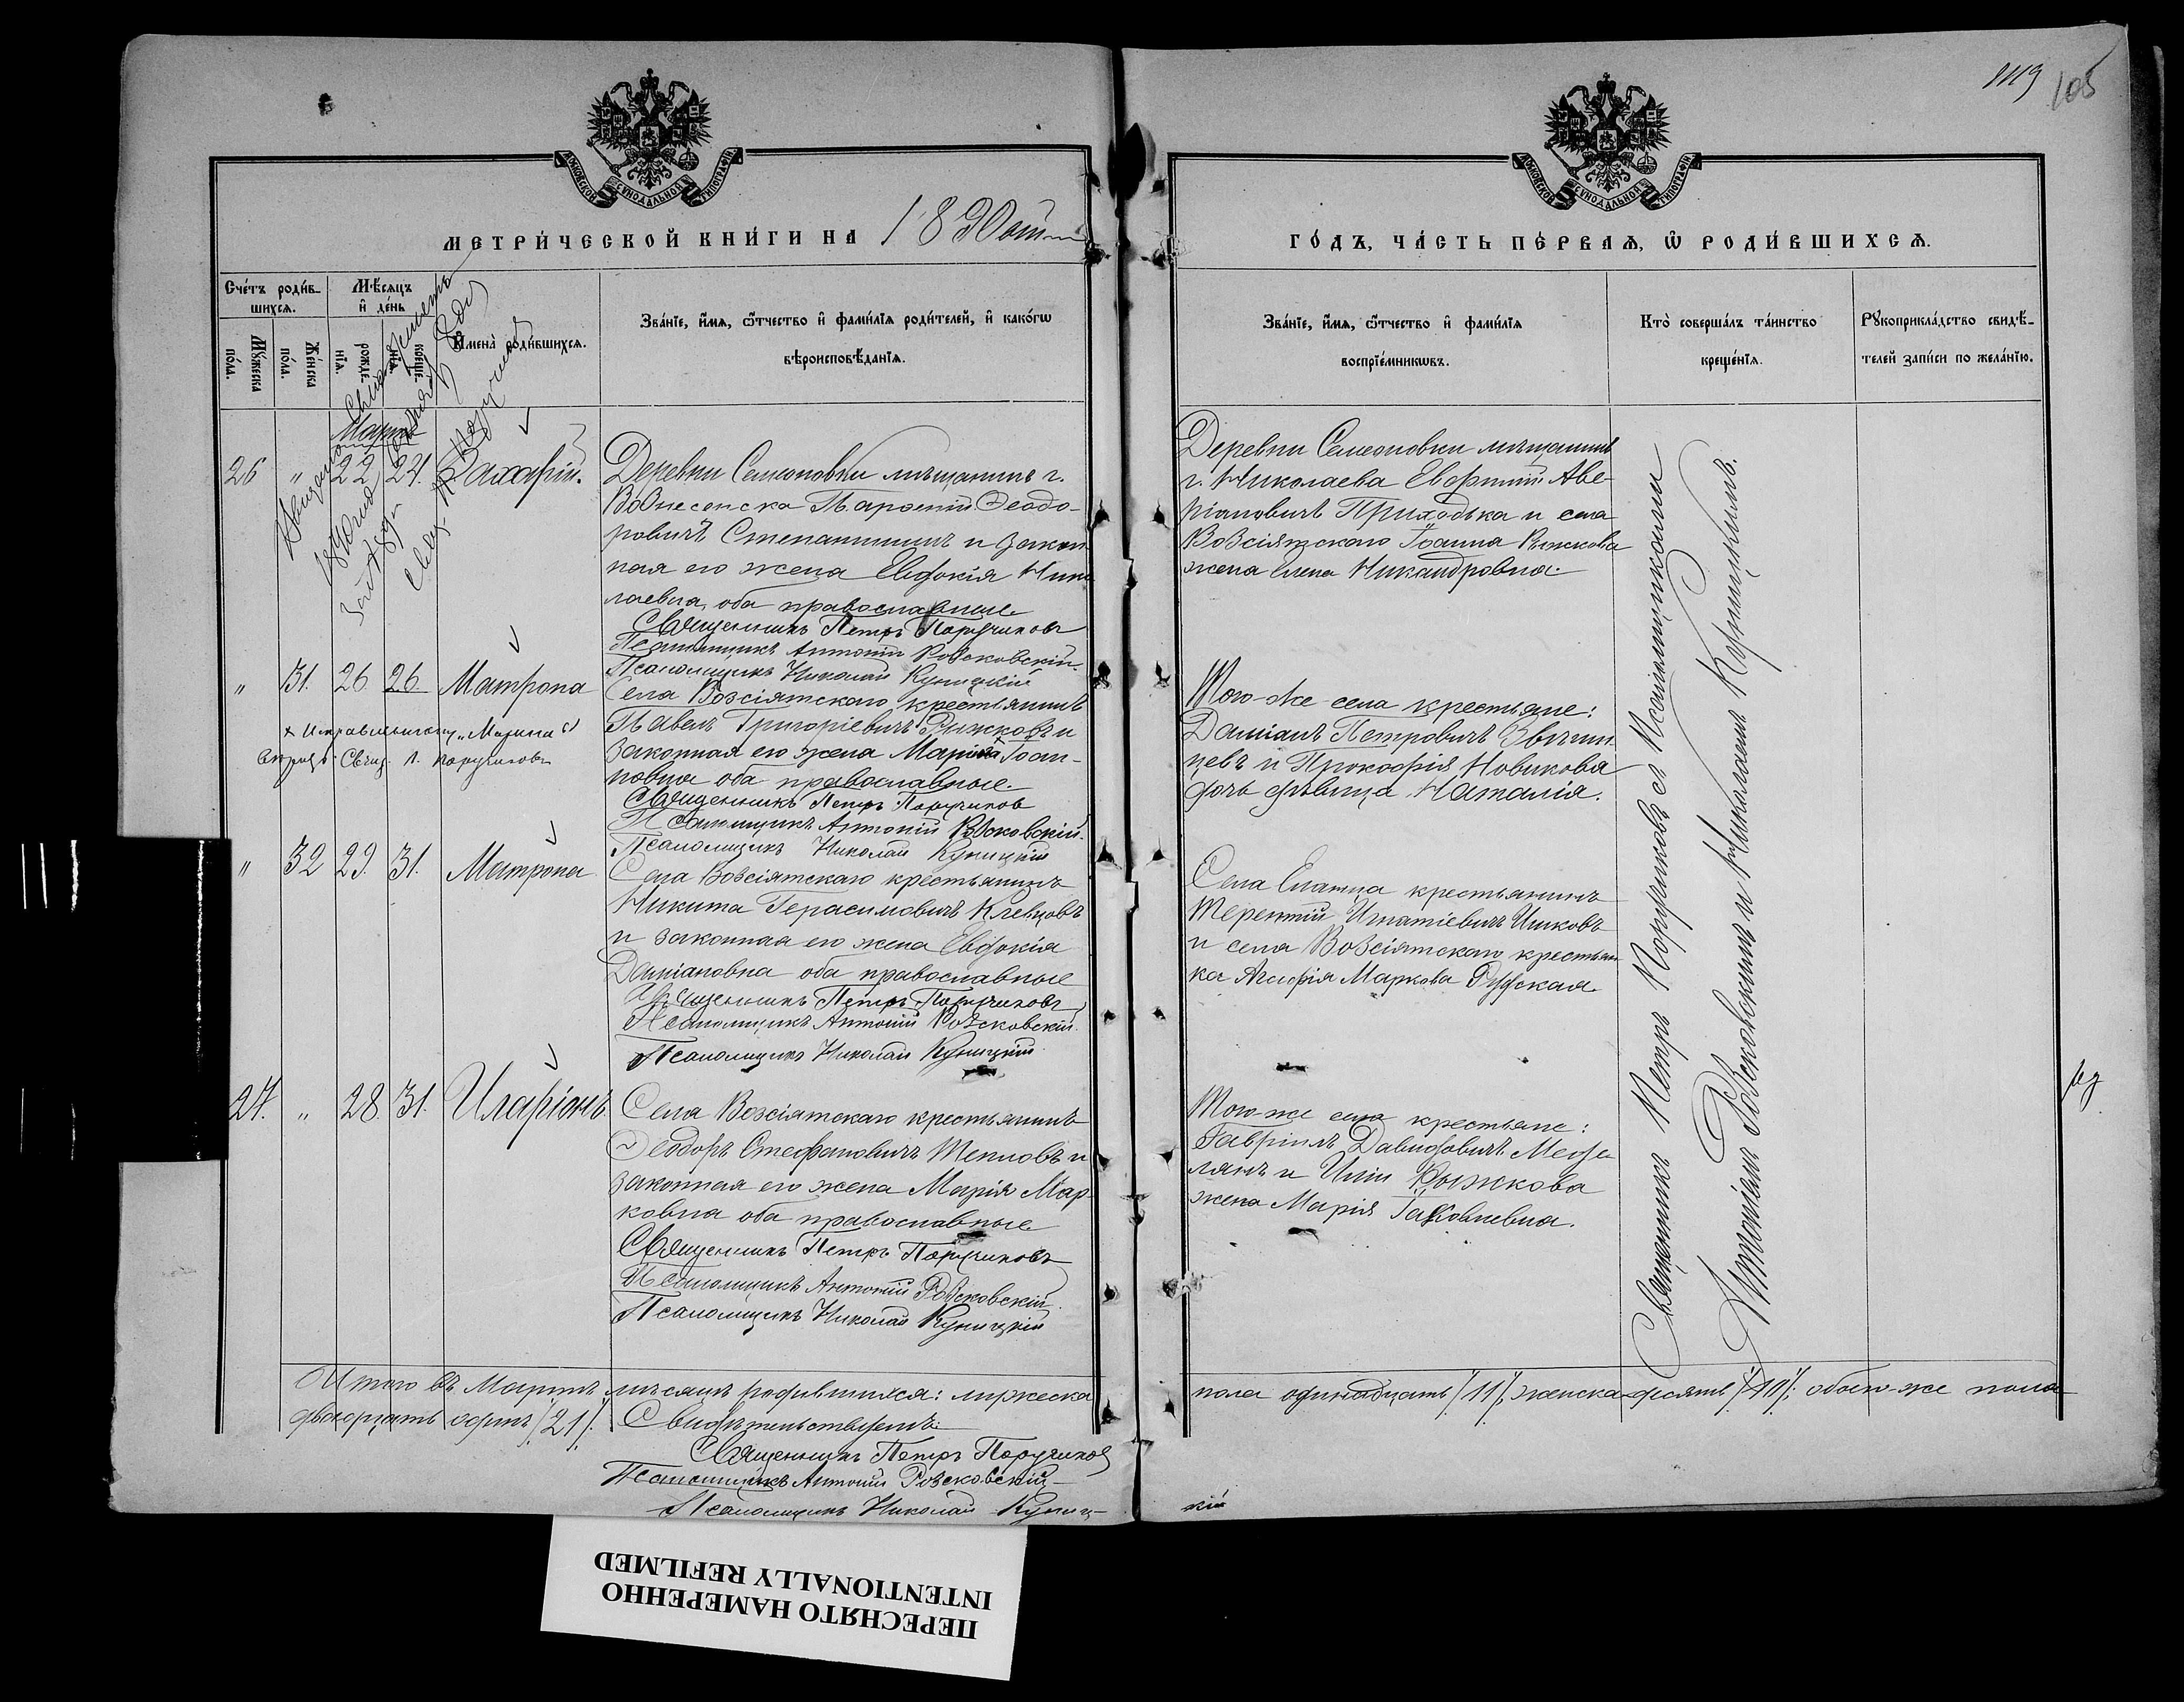 1119 105
МОСКОВСКОЙ СѴНОДАЛЬНОЙ ТИПОГРАФІИ
МОСКОВСКОЙ СѴНОДАЛЬНОЙ ТИПОГРАФІИ
МЕТРИ́ЧЕСКОЙ КНИ́ГИ НА 1890 от
ГО́ДЪ, ЧА́СТЬ ПЕ́РВАЯ, Ѿ РОДИ́ВШИХСЯ.
Сче́тъ роди́в-
шихся.
Мѣ́сяцъ
и҆ де́нь
Му́жеска
по́ла.
Же́нска
по́ла.
рожде-
нїя.
креще-
нїя.
И҆мена̀ роди́вшихся.
Зва́нїе, и҆́мя, ѻ҆́тчество и҆ фами́лїя роди́телей, и҆ како́гѡ
вѣроисповѣ́данїя.
Зва́нїе, и҆́мя, ѻ҆́тчество и҆ фами́лїя
воспрїе́мникѡвъ.
Кто̀ соверша́лъ та́инство
креще́нїя.
Рꙋкоприкла́дство свидѣ́-
телей за́писи по жела́нїю.
Мартъ
26 " 22 24. Захарій.
Деревни Семеновки мѣщанинъ г.
Вознесенска Парѳеній Ѳеодо-
ровичъ Степанишинъ и закон
ная его жена Евдокія Нико
лаевна, оба православные
Священникъ Петръ Поручиковъ
Псаломщикъ Антоній Розсковскій.
Псаломщикъ Николай Куницкій
Деревни Семеновки мѣщанинъ
г. Николаева Евфимій Аве-
ріановичъ Приходька и села
Возсіятскаго Іоанна Рыжкова
жена Елена Никандровна.
" 31. 26. 26. Матрона
х Исправленному "Марина"
вѣрно Свящ. П. Поручиковъ
Села Возсіятскаго крестьянинъ
Павелъ Григоріевичъ Рыжковъ и
законная его жена Марина Іоан-
новна оба православные.
Священникъ Петръ Поручиковъ
Псаломщикъ Антоній Розсковскій.
Псаломщикъ Николай Куницкій
Того-же села крестьяне:
Даміанъ Петровичъ
и Прокофія Новикова
дочь дѣвица Наталія.
" 32 29. 31. Матрона
Села Возсіятскаго крестьянинъ
Никита Герасимовичъ Клевцовъ
и законная его жена Евдокія
Даміановна оба православные
Священникъ Петръ Поручиковъ
Псаломщикъ Антоній Розсковскій.
Псаломщикъ Николай Куницкій
Села Еланца крестьянинъ
Терентій Игнатіевичъ
и села Возсіятскаго крестьян
ка Агафія Маркова
27. " 28. 31. Иларіонъ
Села Возсіятскаго крестьянинъ
Ѳеодоръ Стефановичъ Тепловъ и
законная его жена Марія Мар
ковна оба православные
Священникъ Петръ Поручиковъ
Псаломщикъ Антоній Розсковскій.
Псаломщикъ Николай Куницкій
Того-же села крестьяне:
Гавріилъ Давидовичъ
и Иліи Рыжкова
жена Марія Іаковлевна.
Священникъ Петръ Поручиковъ съ Псаломщиками
Антоніемъ Розсковскимъ и Николаемъ Куницкимъ.
Итого въ Мартѣ мѣсяцѣ родившихся: мужеска пола одинадцать /11/, женска десять /10/; обоего-же пола
двадцать одинъ /21/. Свидѣтельствуемъ:
Священникъ Петръ Поручиковъ
Псаломщикъ Антоній Розсковскій
Псаломщикъ Николай Куниц-
кій
ПЕРЕСНЯТО НАМЕРЕННО
INTENTIONALLY REFILMED